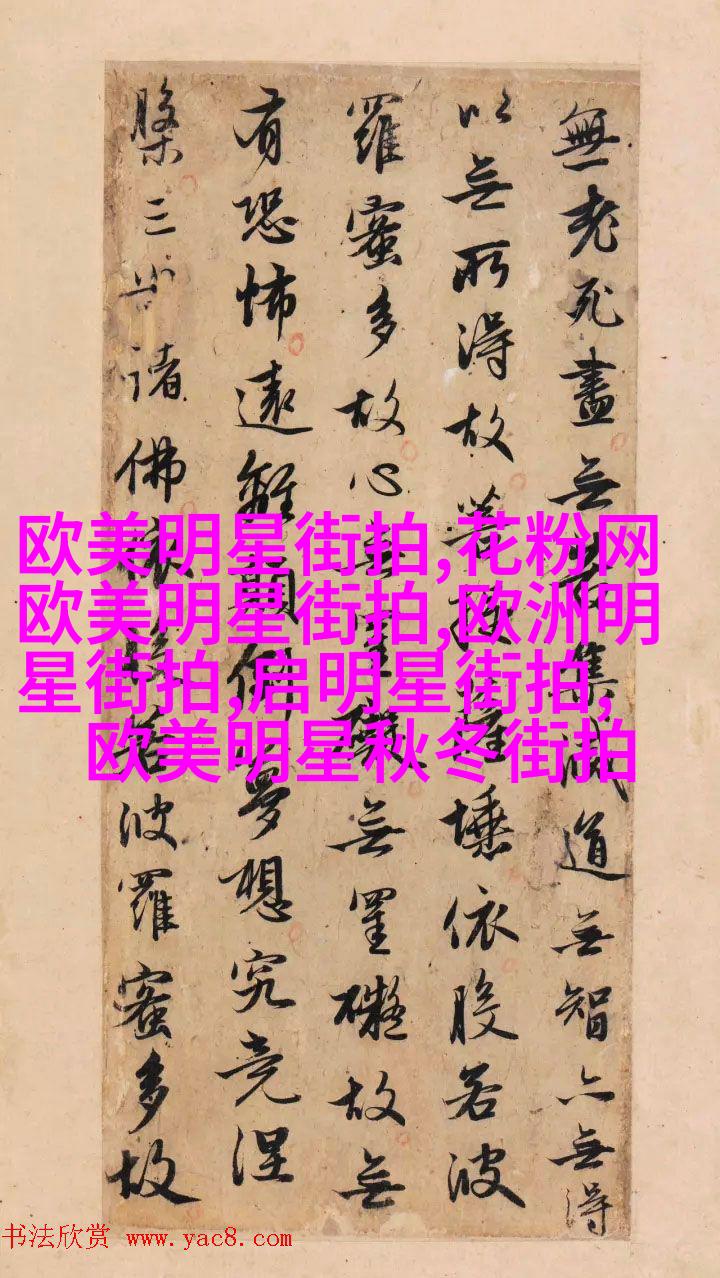 無老死盡无苦集滅道无智亦无得
以无所得故菩提薩埵依般若波
羅蜜多故心无罣礙无罣礙故无
有恐怖遠離顛倒夢想究竟涅
槃三世諸佛依般若波羅蜜多故
欧美明星街拍,花粉网
欧美明星街拍,欧洲明
星街拍,启明星街拍,
欧美明星秋冬街拍
书法欣赏 www.yac8.com